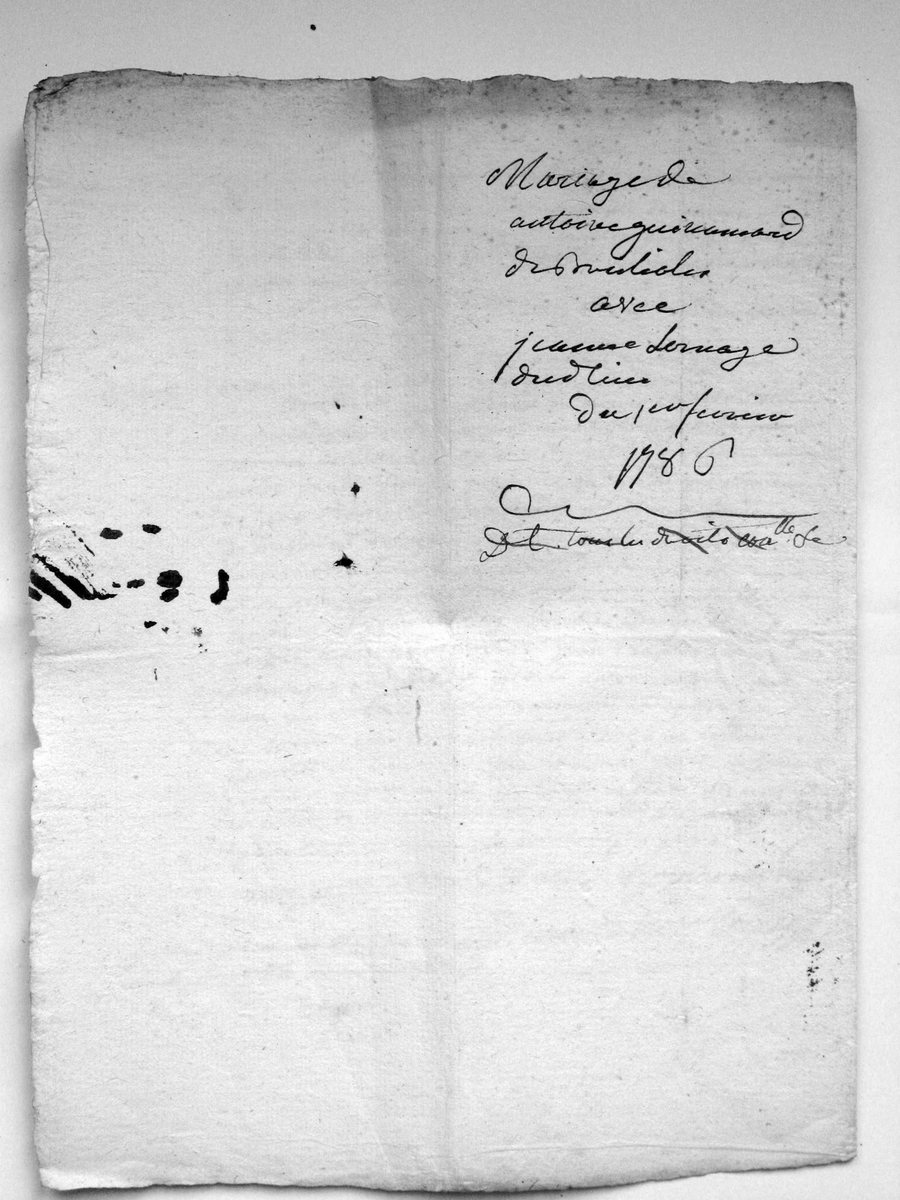 Mariage de
antoine guironnard
de
avec
jeanne Lernage
dud lieu
du 1er fevrier
1786
D t. tous les droits coalle. De